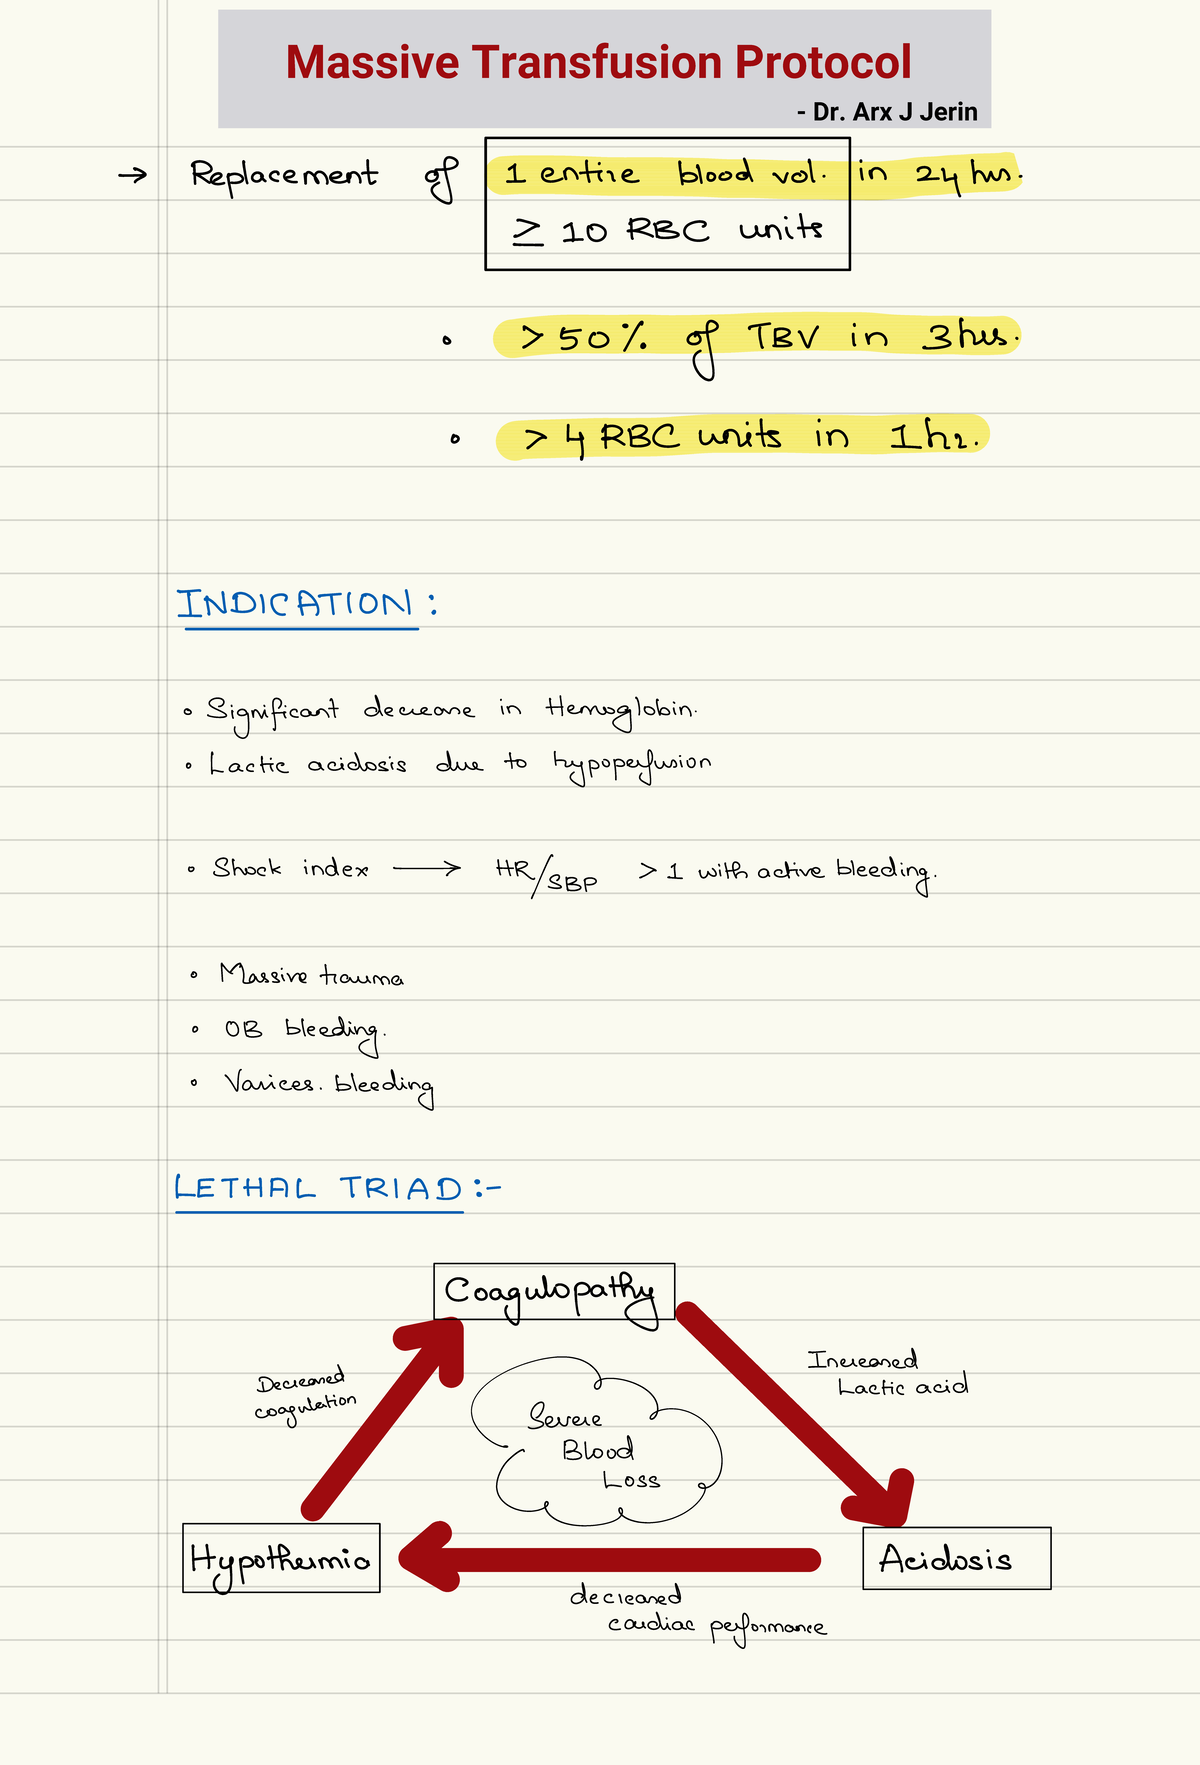 Massive Transfusion Protocol
- Dr. Arx J Jerin
→ Replacement of 1 entire blood vol. in 24 hrs.
≥ 10 RBC units
• > 50% of TBV in 3 hrs.
• > 4 RBC units in 1 hr.
INDICATION :
• Significant decrease in Hemoglobin.
• Lactic acidosis due to hypoperfusion
• Shock index → HR/SBP > 1 with active bleeding.
• Massive trauma
• OB bleeding.
• Varices. bleeding
LETHAL TRIAD :-
Coagulopathy
Increased
Lactic acid
Decreased
coagulation
Severe
Blood
Loss
Hypothermia
Acidosis
decreased
cardiac performance